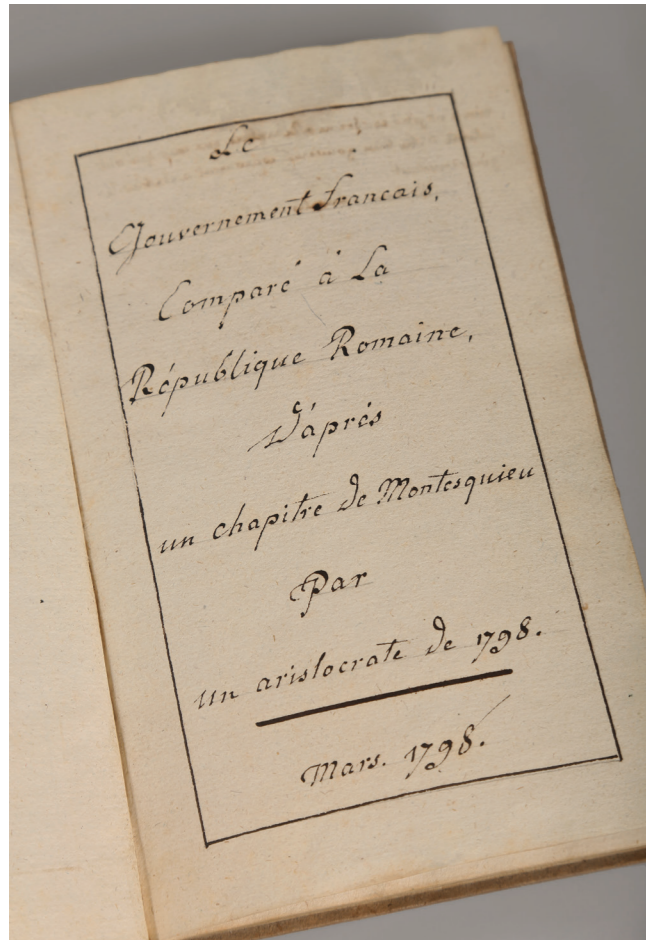 Le
Gouvernement francais,
Comparé à La
République Romaine,
D'aprés
un chapitre de Montesquieu
Par
un aristocrate de 1798.
Mars. 1798.